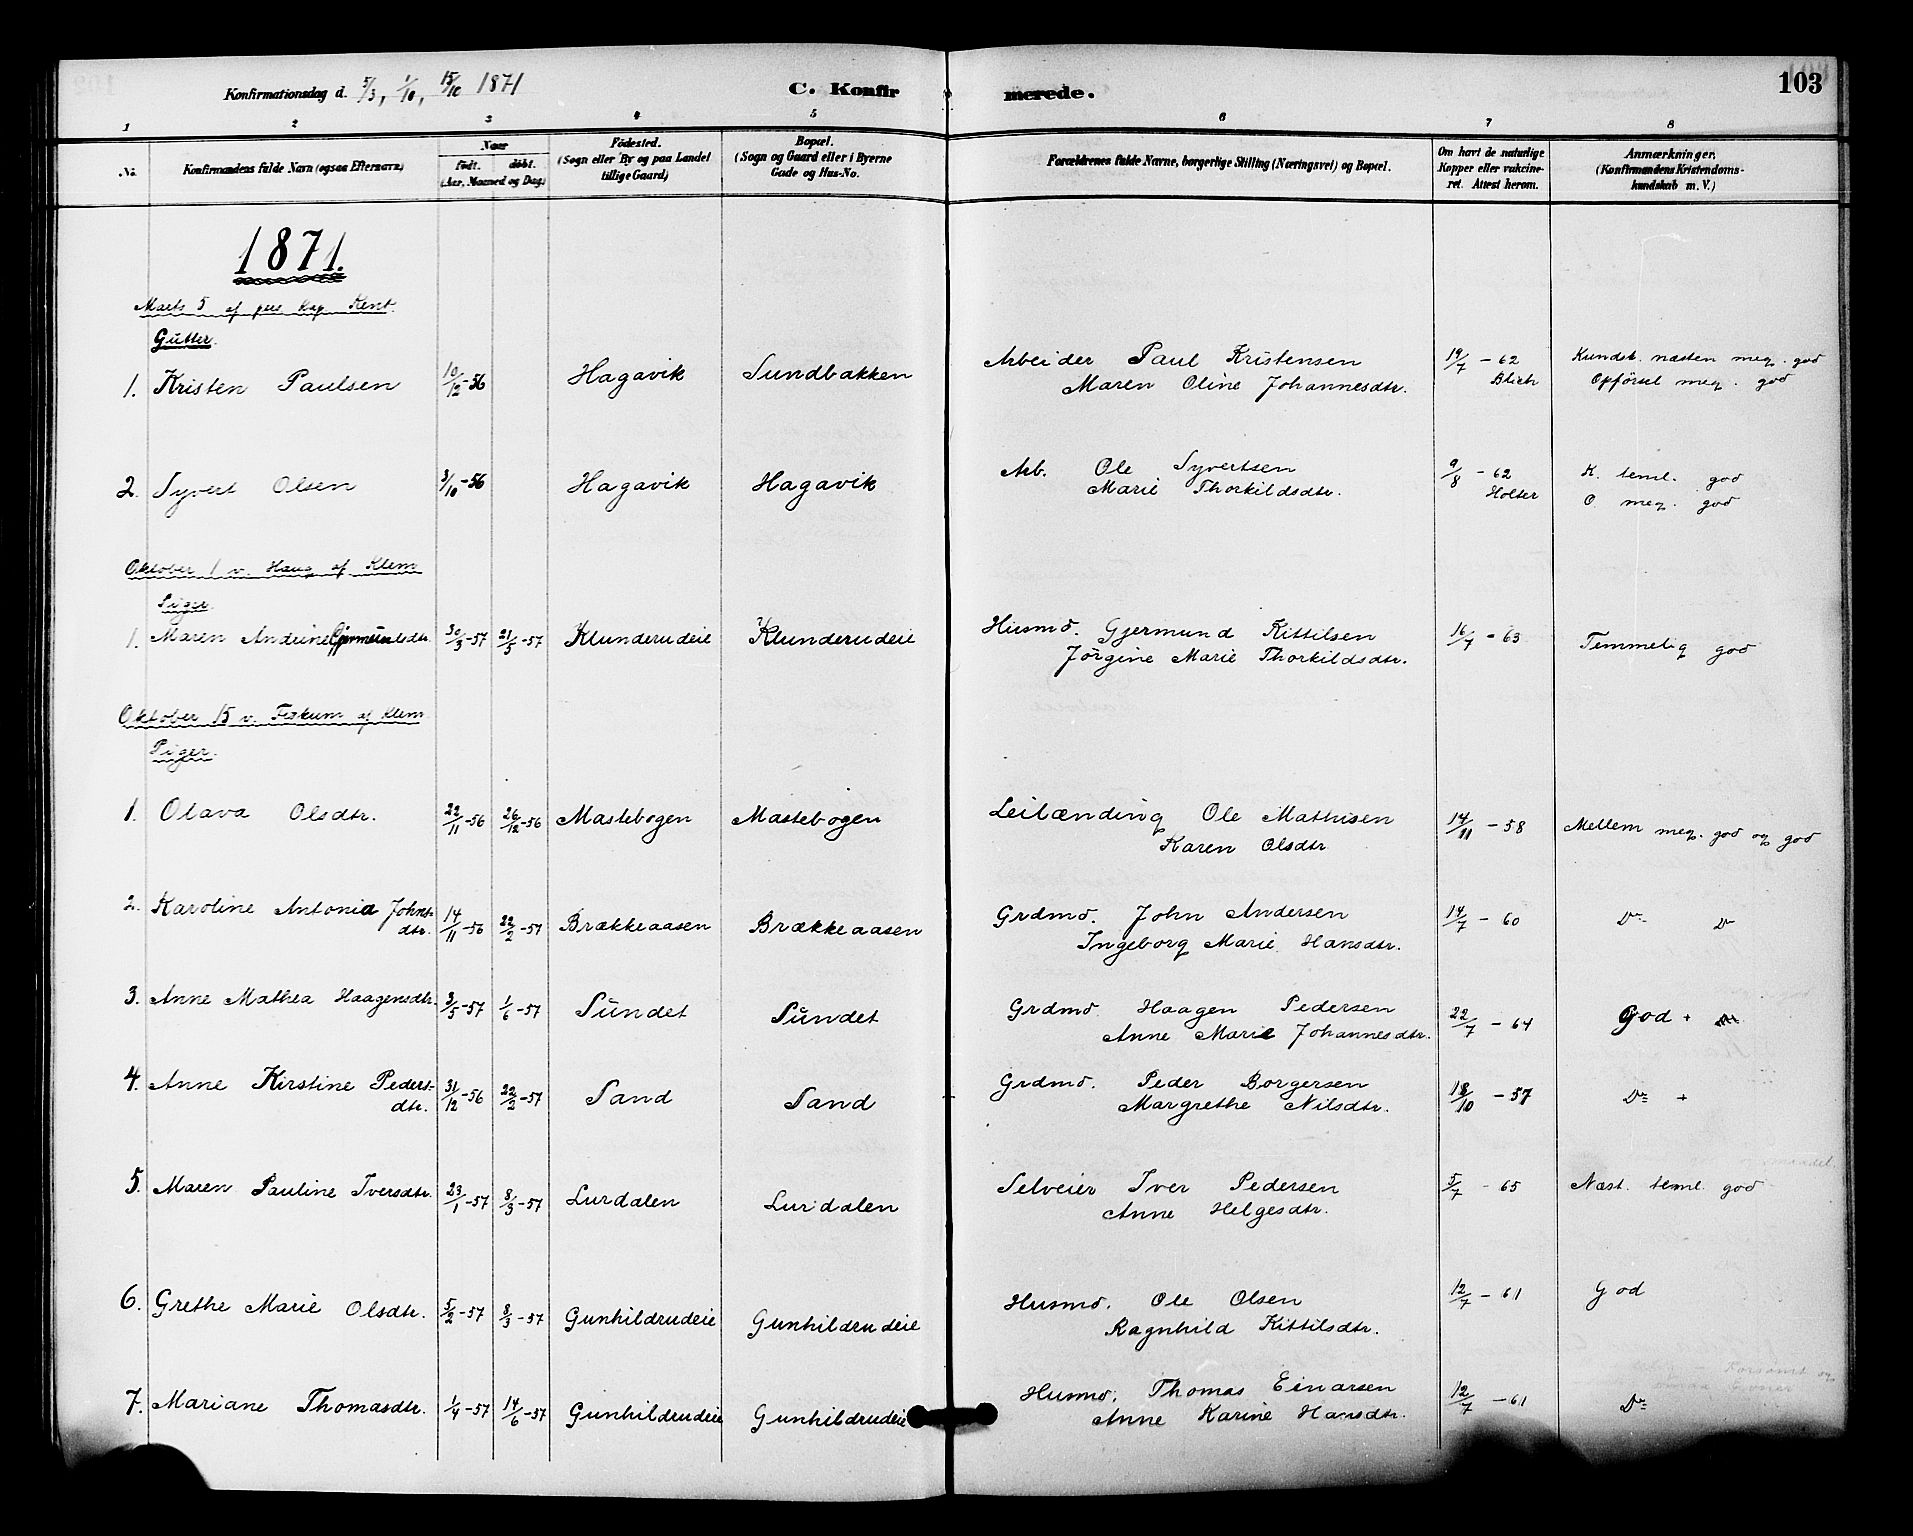 Konfirmationsdag d. 5/3, 1/10, 15/10 1871 C. Konfirmerede. 103
1 2 3 4 5 6 7 8
No. Konfirmandens fulde Navn (ogsaa Efternavn) Naar født. døbt. (Aar, Maaned og Dag) Fødested. (Sogn eller By og paa Landet tillige Gaard) Bopæl. (Sogn og Gaard eller i Byerne Gade og Hus-No. Forældrenes fulde Navne, borgerlige Stilling (Næringsvei) og Bopæl. Om havt de naturlige Kopper eller vakcineret. Attest herom. Anmærkninger. (Konfirmandens Kristendomskundskab m. V.)
1871.
Marts 5 af pers Kap. Kent.
Gutter.
1. Kristen Paulsen 10/12-56 Hagavik Sundbakken Arbeider Paul Kristensen 19/7 - 62 Kundsk. næsten meg. god
Maren Oline Johannesdtr. Blich Opførsel meg. god
2. Syvert Olsen 3/10-56 Hagavik Hagavik Arb. Ole Syvertsen 9/8 - 62 K. teml. god
Marie Thorkildsdtr. Holter O. meg. god
Oktober 1 v. Haug af Klem
Piger.
1. Maren Andrine Gjermundsdtr. 30/3-57 21/5-57 Klunderudeie Klunderudeie Husmd. Gjermund Kittilsen 16/7 - 63 Temmelig god
Jørgine Marie Thorkildsdtr.
Oktober 15 v. Fiskum af Klem
Piger.
1. Olava Olsdtr. 22/11-56 26/12-56 Mastebogen Mastebogen Leilænding Ole Mathisen 14/11 - 58 Mellem meg. god og god
Karen Olsdtr
2. Karoline Antonia Johns- 14/11-56 22/2-57 Brækkeaasen Brækkeaasen Grdmd. John Andersen 14/7 - 60 Do Do
dtr. Ingeborg Marie Hansdtr.
3. Anne Mathea Haagensdtr. 3/5-57 1/6-57 Sundet Sundet Grdmd. Haagen Pedersen 22/7 - 64 God +
Anne Marie Johannesdtr.
4. Anne Kirstine Peders- 31/12-56 22/2-57 Sand Sand Grdmd. Peder Borgersen 18/10 - 57 Do +
dtr. Margrethe Nilsdtr.
5. Maren Pauline Iversdtr. 23/1-57 8/3-57 Lurdalen Lurdalen Selveier Iver Pedersen 5/7 - 65 Næst. teml. god
Anne Helgesdtr.
6. Grethe Marie Olsdtr. 5/2-57 8/3-57 Gunhildrudeie Gunhildrudeie Husmd. Ole Olsen 12/7 - 61 God
Ragnhild Kittilsdtr.
7. Mariane Thomasdtr. 1/4-57 14/6-57 Gunhildrudeie Gunhildrudeie Husmd. Thomas Einarsen 12/7 - 61 Do
Anne Karine Hansdtr.